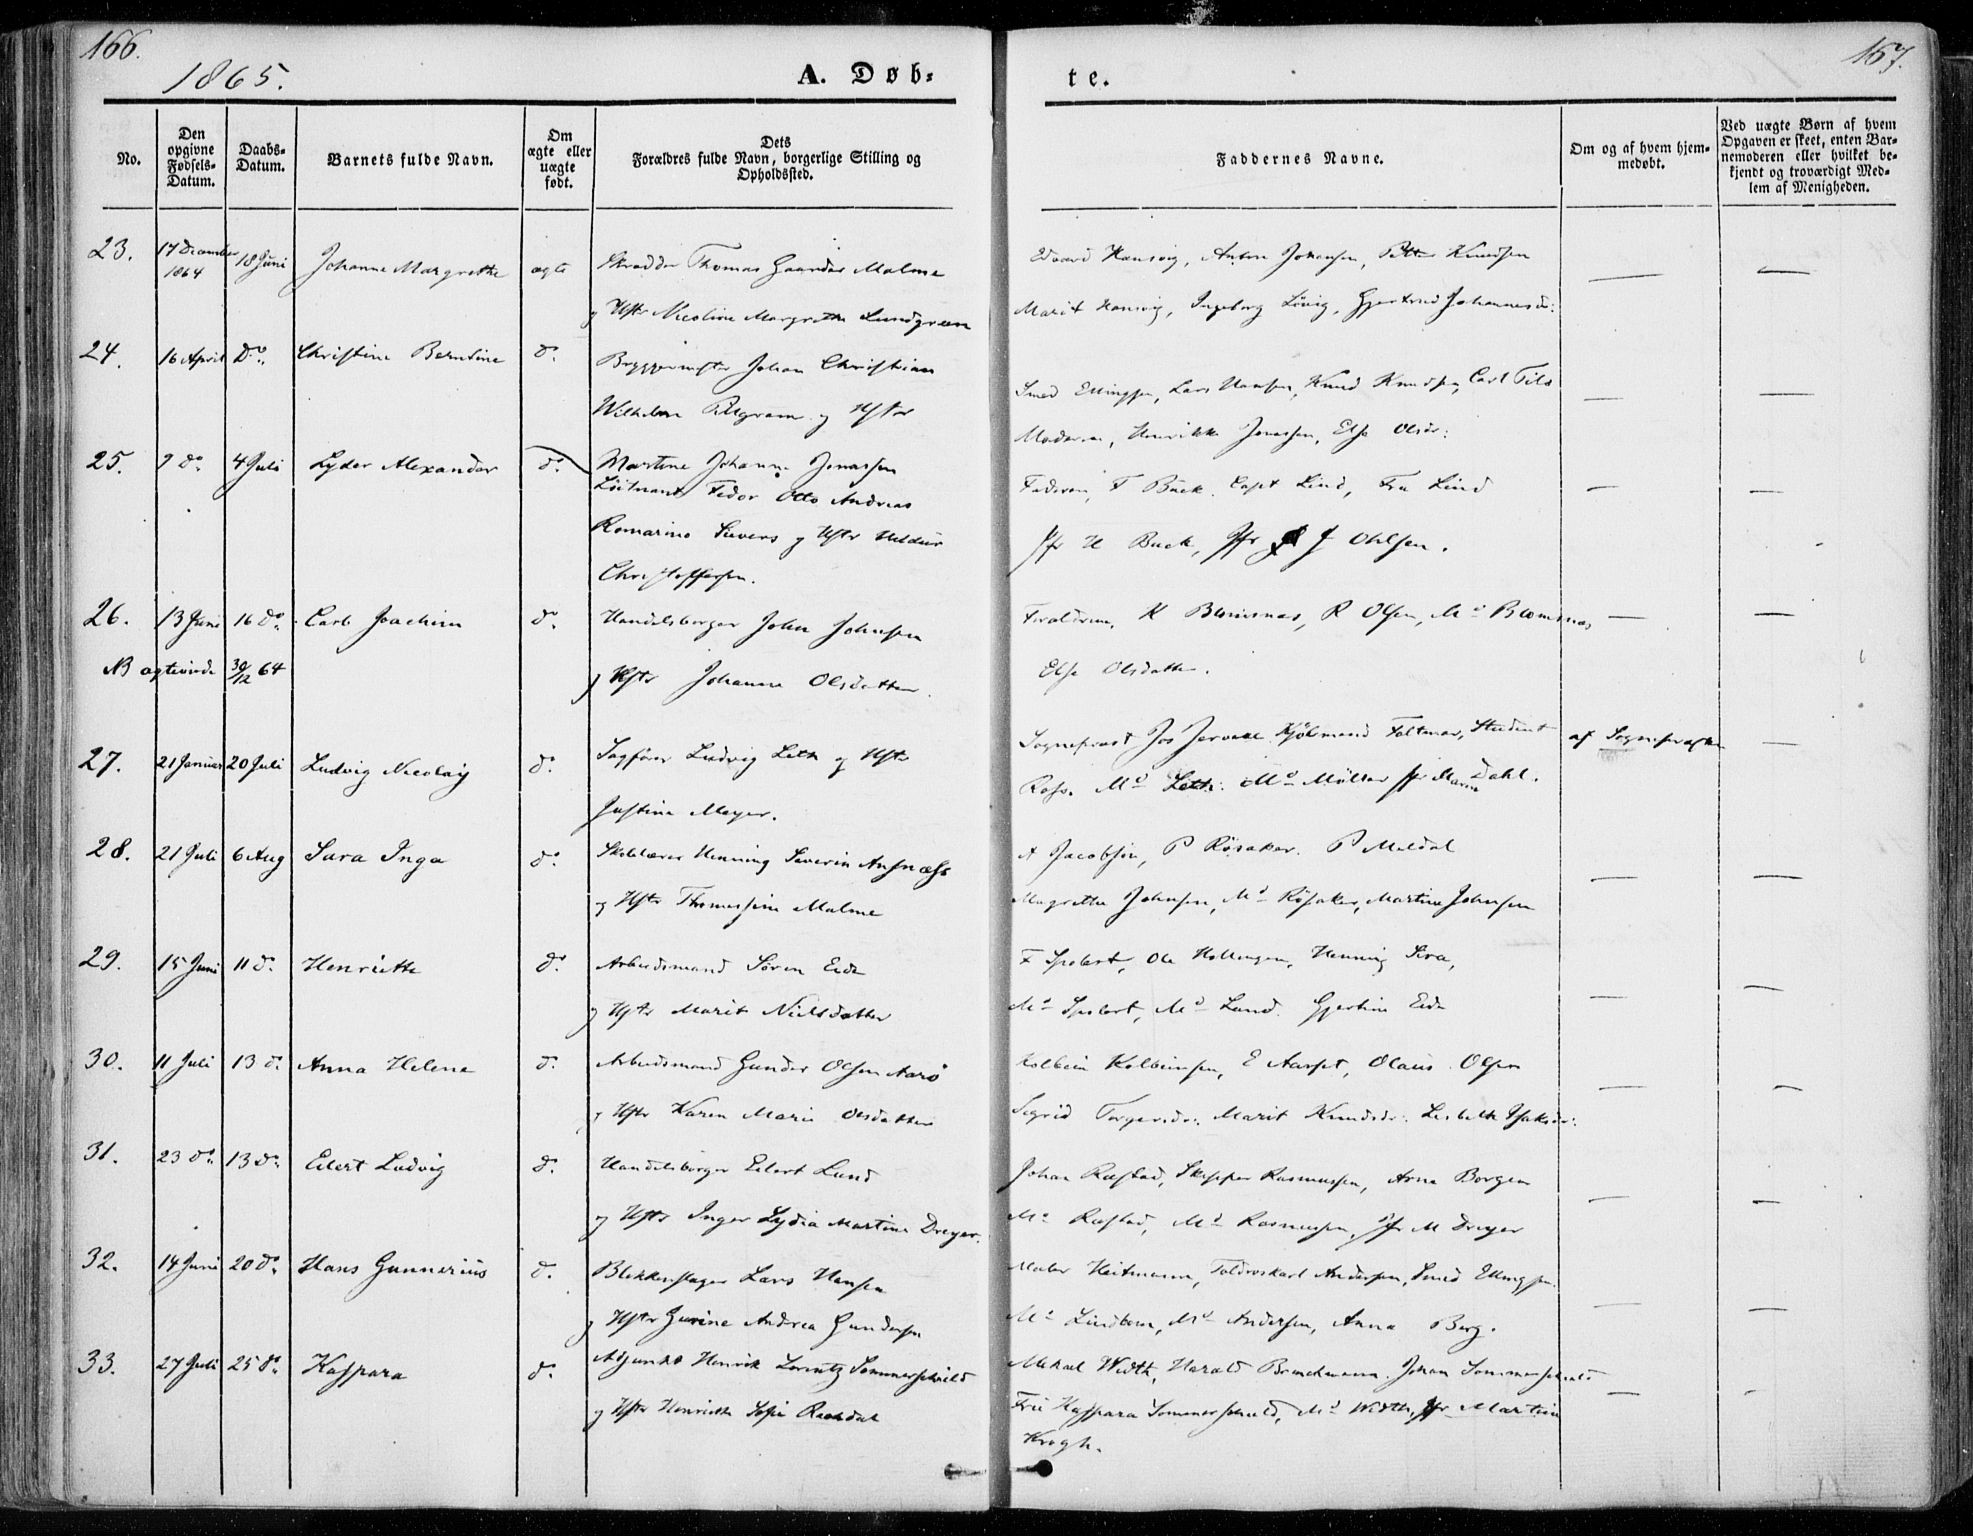 166.
167.
1865.
A. Døb-
te.
No.
Den opgivne Fødsels-Datum.
Daabs-Datum.
Barnets fulde Navn.
Om ægte eller uægte født.
Dets Forældres fulde Navn, borgerlige Stilling og Opholdssted.
Faddernes Navne.
Om og af hvem hjem-medøbt.
Ved uægte Børn af hvem Opgaven er skeet, enten Bar-nemoderen eller hvilket be-kjendt og troværdigt Med-lem af Menigheden.
23. 17 December 1864 18 Juni Johanne Margrethe ægte Skrædder Thomas Malme
og Hstr Nicoline Margrethe Lundgreen
Edvard Hansvig, Anton Johansen, Petter Knudsen
Marit Hansvig, Ingeborg Lövig, Gjertrud Johannesdr:
24. 16 April Do Christine Berntine do Bryggermester Johan Christian
Wilhelm Pilgram og Hstr
Martine Johanne Jonassen
Smed Ellingsen, Lars Hansen, Knud Knudsen, Carl
Moderen, Henrikke Jonassen, Else Olsdr:
25. 9 do 4 Juli Lyder Alexander do
Löitnant Fedor Otto Andreas
Romarino Sievers og Hstr Huldur
Christoffersen.
Faderen, F Buck. Capt Lind, Fru Lind
Jfr H Buck, Jfr J Ohlsen.
26. 13 Juni 16 do Carl Joachim do Handelsborger John Johnsen
NB ægteviede 30/12 64
og Hstr Johanna Olsdatter.
Foraldrene, K Blomsnæs, R Olsen, Md Blomsnæs
Else Olsdatter.
27. 21 Januar 20 Juli Ludvig Nicolay do Sagförer Ludvig Leth og Hstr
Justine Meyer.
Sogneprest Jos Jervell Kjöbmand Faltmar, Student
Ross. Md Leth: Md Möller Jfr Maren Dahl.
af Sognepresten
28. 21 Juli 6 Aug Sara Inga do Skolelærer Henning Severin Ansnæss
og Hstr Thomassine Malme
A Jacobsen, P Rösaker. P Meldal
Magrethe Johnsen, Md Rösaker, Martine Johnsen
29. 15 Juni 11 do Henriette do Arbeidsmand Sören Eide
og Hstr Marit Nielsdatter
F Spolert, Ole Hollingen, Henning
Md Spolert, Md Lund. Gjertine Eide
30. 11 Juli 13 do Anna Helene do Arbeidsmand Gunder Olsen Aarö
og Hstr Karen Marie Olsdatter
Kolbein Kolbeinsen, E Aarset, Olaus Olsen
Sigrid Torgersdr: Marit Knudsdr: Lisbeth Isaksdr:
31. 23 do 13 do Eilert Ludvig do Handelsborger Eilert Lund
og Hstr Inger Lydia Martine Dreyer.
Johan Ræstad, Skipper Rasmussen, Arne Borgen
Md Ræstad, Md Rasmussen, Jfr M Dreyer
32. 14 Juni 20 do Hans Gunnerius do Blikkenslager Lars Hansen
og Hstr Gurine Andrea Gundersen
Maler Heitmann, Toldroskarl Andersen, Smed Ellingsen.
Md Lindbom, Md Andersen, Anna Berg.
33. 27 Juli 25 do Kaspara do Adjunkt Henrik Lorentz Sommerschield
og Hstr Henriette Sofie
Mikael Width, Harald Brinchmann. Johan Sommerschield
Frü Kaspara Sommerschield, Md Width, Jfr Martine
Krogh.